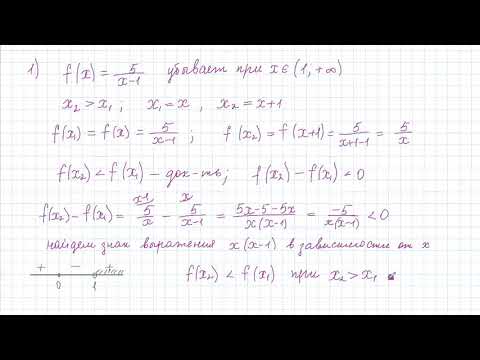 1) f(x) = 5/(x-1) убывает при x ∈ (1, +∞)
x₂ > x₁ ; x₁ = x , x₂ = x+1
f(x₁) = f(x) = 5/(x-1) ; f(x₂) = f(x+1) = 5/(x+1-1) = 5/x
f(x₂) < f(x₁) – док-ть; f(x₂) - f(x₁) < 0
f(x₂) - f(x₁) = x-1 5/x - x 5/(x-1) = (5x-5-5x)/(x(x-1)) = -5/(x(x-1)) < 0
найдем знак выражения x(x-1) в зависимости от x
+ - + 0 1 f(x₂) < f(x₁) при x₂ > x₁